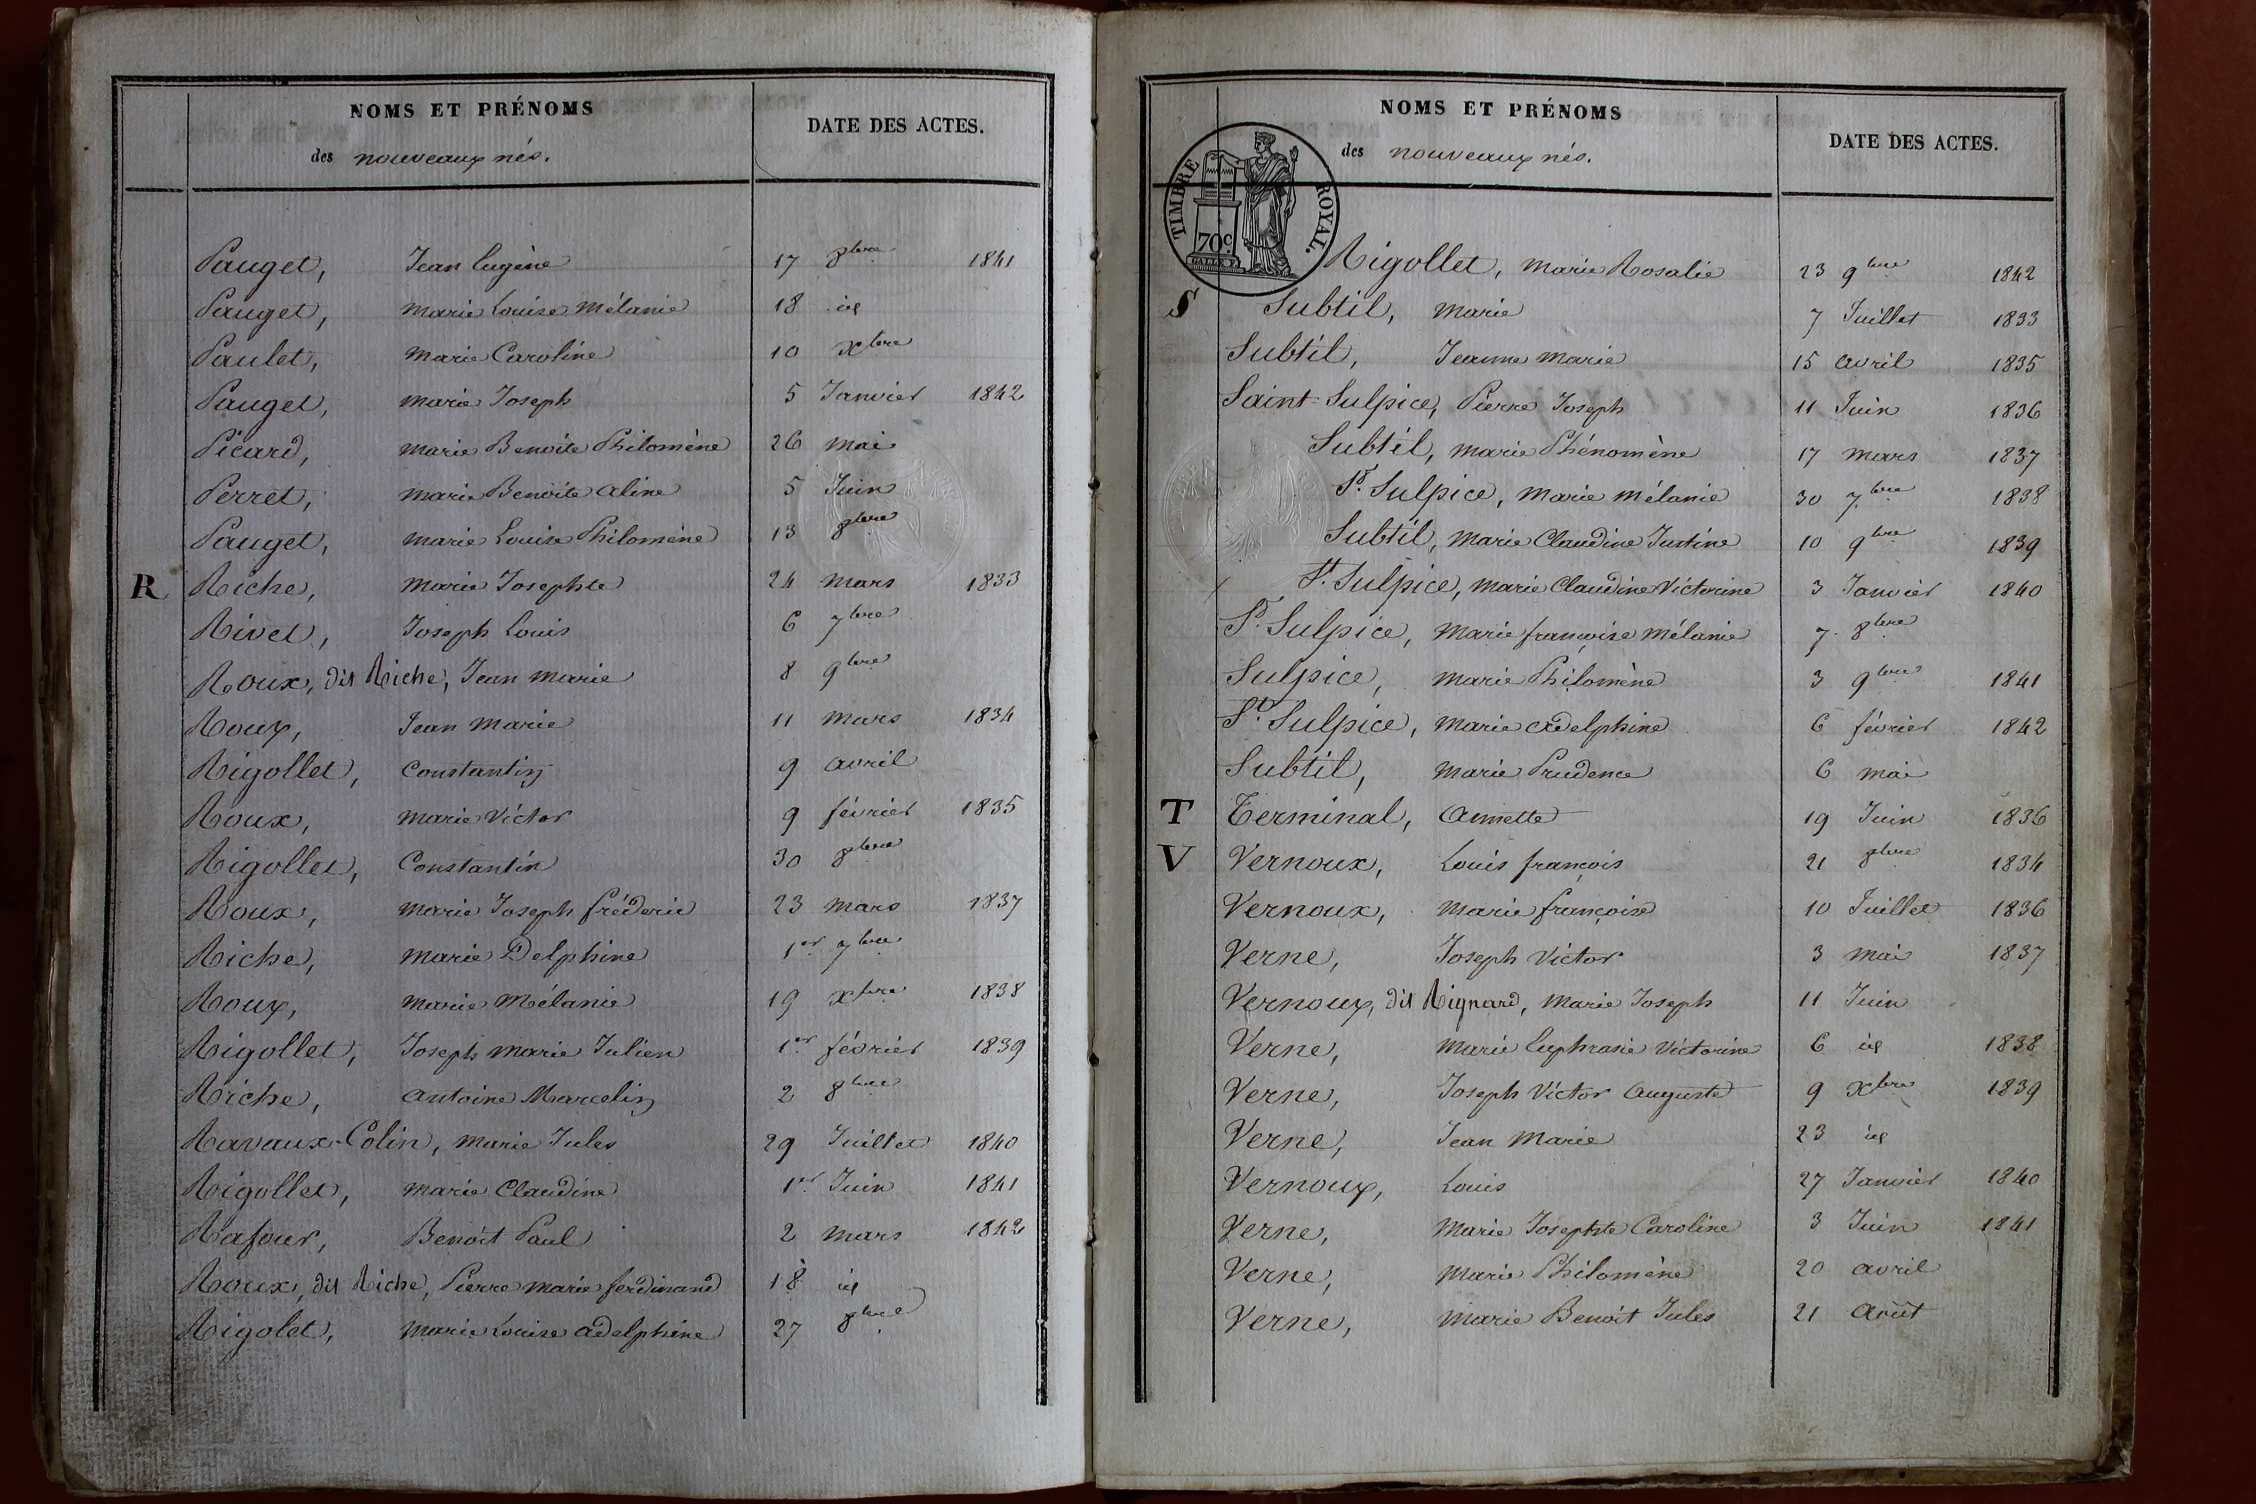 NOMS ET PRÉNOMS
DATE DES ACTES.
des nouveaux nés.
Pauget, Jean Eugène 17 8bre 1841
Pauget, Marie Louise Mélanie 18 id
Paulet, Marie Caroline 10 Xbre
Pauget, Marie Joseph 5 Janvier 1842
Picard, Marie Benoite Philomène 26 mai
Perret, Marie Benoite Aline 5 Juin
Pauget, Marie Louise Philomène 13 8bre
R Riche, Marie Josephte 24 mars 1833
Rivet, Joseph Louis 6 7bre
Roux, dit Riche, Jean Marie 8 9bre
Roux, Jean Marie 11 mars 1834
Rigollet, Constantin 9 avril
Roux, Marie Victor 9 février 1835
Rigollet, Constantin 30 8bre
Roux, Marie Joseph fréderic 23 mars 1837
Riche, Marie Delphine 1er 7bre
Roux, Marie Mélanie 19 Xbre 1838
Rigollet, Joseph Marie Julien 1er février 1839
Riche, Antoine Marcelin 2 8bre
Ravaux-Colin, Marie Jules 29 Juillet 1840
Rigollet, Marie Claudine 1er Juin 1841
Rafour, Benoît Paul 2 mars 1842
Roux, dit Riche, Pierre Marie ferdinand 18 id
Rigolet, Marie Louise Adelphine 27 8bre
NOMS ET PRÉNOMS
DATE DES ACTES.
des nouveaux nés.
TIMBRE ROYAL.
70c.
Rigollet, Marie Rosalie 23 9bre 1842
S Subtil, Marie 7 Juillet 1833
Subtil, Jeanne Marie 15 avril 1835
Saint-Sulpice, Pierre Joseph 11 Juin 1836
Subtil, Marie Phénomène 17 mars 1837
St. Sulpice, Marie Mélanie 30 7bre 1838
Subtil, Marie Claudine Justine 10 9bre 1839
St. Sulpice, Marie Claudine Victorine 3 Janvier 1840
St. Sulpice, Marie françoise Mélanie 7 8bre
Sulpice, Marie Philomène 3 9bre 1841
St. Sulpice, Marie Adelphine 6 février 1842
Subtil, Marie Prudence 6 mai
T Terminal, Annette 19 Juin 1836
V Vernoux, Louis françois 21 8bre 1834
Vernoux, Marie françoise 10 Juillet 1836
Verne, Joseph Victor 3 mai 1837
Vernoux, dit Rignard, Marie Joseph 11 Juin
Verne, Marie Euphrasie Victorine 6 id 1838
Verne, Joseph Victor Auguste 9 Xbre 1839
Verne, Jean Marie 23 id
Vernoux, Louis 27 Janvier 1840
Verne, Marie Josephte Caroline 3 Juin 1841
Verne, Marie Philomène 20 avril
Verne, Marie Benoît Jules 21 Août